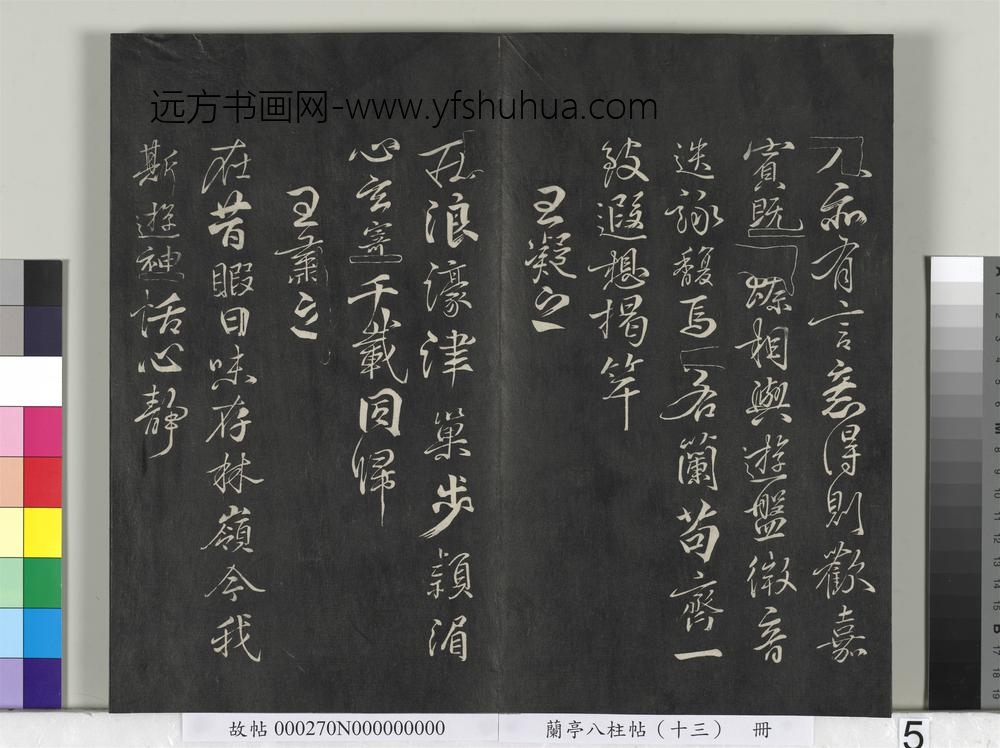 远方书画网-www.yfshuhua.com
人亦有言意得則歡嘉
賓既臻相與遊盤微音
迭詠馥焉若蘭苟齊一
致遐想揭竿
王凝之
莊浪濠津巢步潁湄
心玄寄千載同歸
王肅之
在昔暇日味存林嶺今我
斯遊神怡心靜
故帖 000270N000000000
蘭亭八柱帖（十三） 冊
5